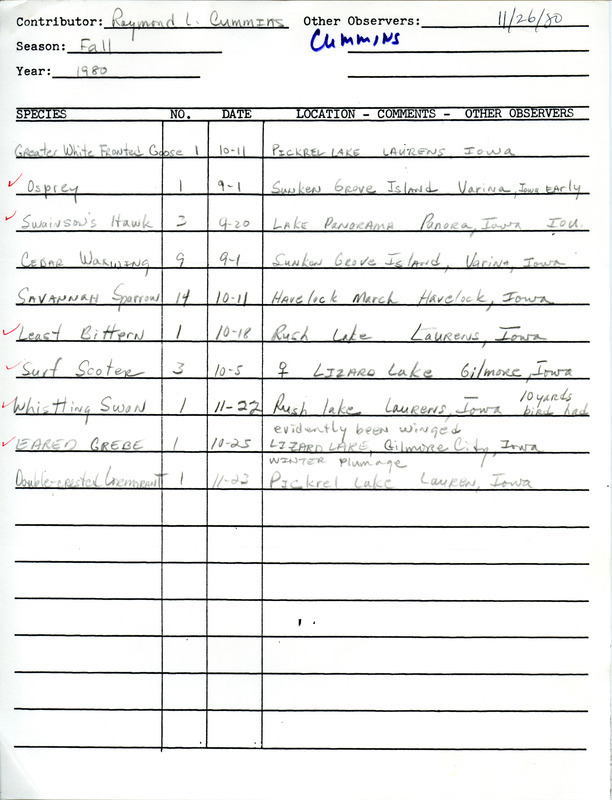 Contributor: Raymond L. Cummins Other Observers: 11/26/80
Season: Fall Cummins
Year: 1980
SPECIES NO. DATE LOCATION - COMMENTS - OTHER OBSERVERS
Greater White Fronted Goose 1 10-11 Pickrel Lake Laurens, Iowa
Osprey 1 9-1 Sunken Grove Island Varina, Iowa Early
Swainson's Hawk 3 9-20 Lake Panorama Panora, Iowa IOU.
Cedar Waxwing 9 9-1 Sunken Grove Island, Varina, Iowa
Savannah Sparrow 14 10-11 Havelock March Havelock, Iowa
Least Bittern 1 10-18 Rush Lake Laurens, Iowa
Surf Scoter 3 10-5 ♀ Lizard Lake Gilmore, Iowa
Whistling Swan 1 11-22 Rush lake Laurens, Iowa 10 yards bird had
evidently been winged
Eared Grebe 1 10-25 Lizard Lake, Gilmore City, Iowa
winter plumage
Double-crested Cormorant 1 11-23 Pickrel Lake Lauren, Iowa